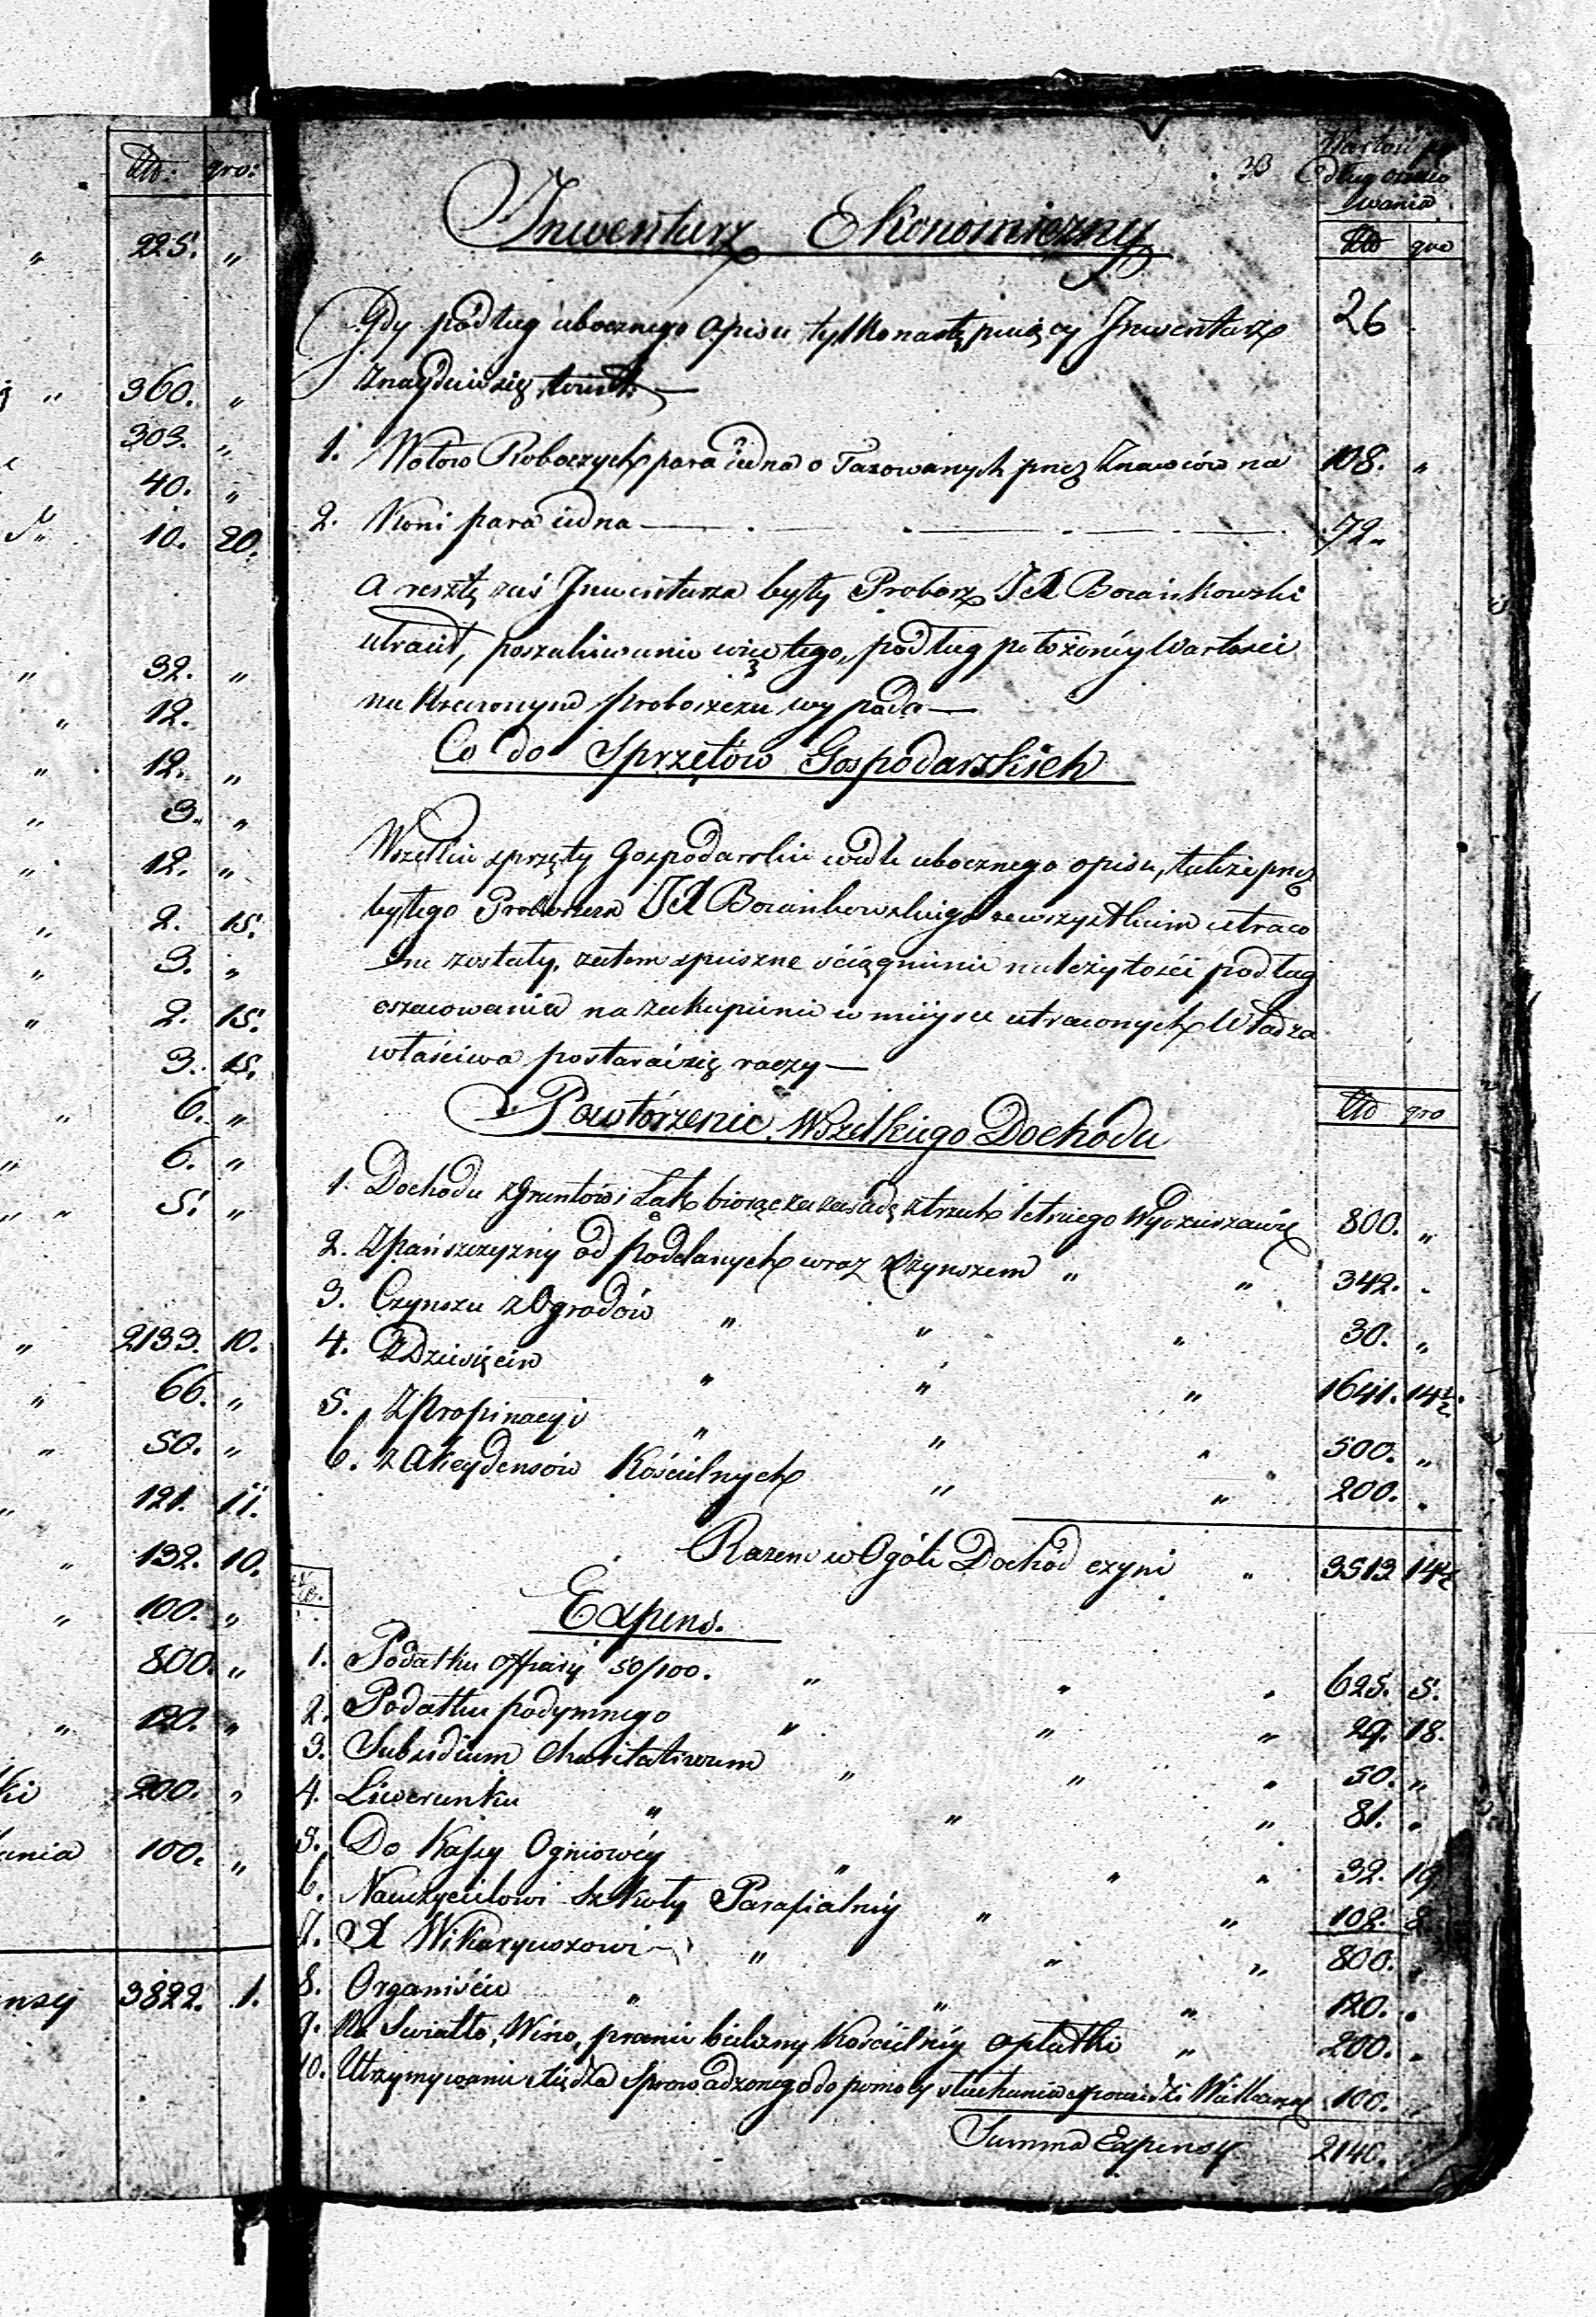 Złło: gro:
" 225. "
" 360. "
303. "
40. "
10. 20.
" 32. "
" 12.
" 12. "
" 3. "
" 12. "
" 2. 15.
" 3. "
" 2. 15.
3. 15.
" 6. "
" 6. "
" " 5. "
" 2133. 10.
" 66. "
" 50. "
" 121. 11.
" 132. 10.
" 100. "
800. "
" 120. "
ki 200. "
ania 100. "
ensy 3822. 1.
33
Wartość po
dług oszaco
wania
Złło gro
Inwentarz Ekonomiczny
Gdy podług ubocznego Opisu tylko następuiący Inwentarz 26
Znayduie się, toiest: —
1. Wołow Roboczych para iedna oTaxowanych przez Znawców na 108. "
2. Koni para iedna — 72 "
a resztę zaś Inwentarza były Proboszcz JX Bociankowski
utracił, poszukiwanie więc tego, podług położonéy Wartości
na Rzeczonym Proboszczu wypada —
Co do Sprzętów Gospodarskich
Wszelkie sprzęty Gospodarskie wedle ubocznego opisu, także przez
byłego Proboszcza JX Bociankowskiego zewszystkiem utraco
ne zostały, zatem spieszne ściągnienie należytości podług
oszacowania na zakupienie w mieysce utraconych Władza
właściwa postarać się raczy —
Złło gro
Powtórzenie Wszelkiego Dochodu
1. Dochodu z Gruntów i Łąk biorąc za zasadę z trzech letniego Wydzierzawie 800. "
2. Z pańszczyzny od poddanych wraz z Czynszem " " 342. "
3. Czynszu z Ogrodów " " " 30. "
4. Z Dziesięcin " " " 1641. 14½.
5. Z Propinacyi " " " 500. "
6. z Akcydensów Kościelnych " " 200. "
Razem w Ogóle Dochód czyni " 3513 14½
Expens.
1. Podatku Offiary 50/100. " " " 625. 5.
2. Podatku podymnego " " " 29. 18.
3. Subsidium Charitativum " " " 50. "
4. Liwerunku " " " 81. "
5. Do Kassy Ogniowéy " " " 32. 19
6. Nauczycielowi Szkoły Parafialnéy " " 102.
7. X Wikaryuszowi — " " " 800. "
8. Organiście " " " 120. "
9. Na Swiatło, Wino, pranie bielizny Kościelnéy Opłatki " 200. "
10. Utrzymywanie Xiędza Sprowadzonego do pomocy słuchania spowiedzi Wielkanoc 100. "
Summa Expensy 2140.